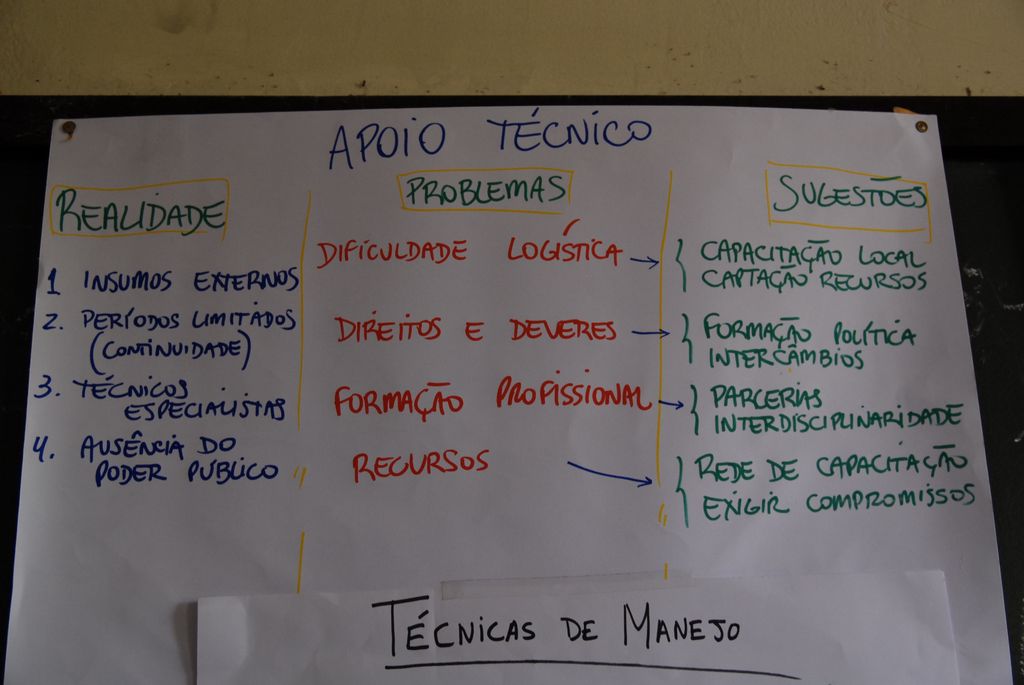 APOIO TÉCNICO
REALIDADE
1 INSUMOS EXTERNOS
2. PERÍODOS LIMITADOS
(CONTINUIDADE)
3. TÉCNICOS
ESPECIALISTAS
4. AUSÊNCIA DO
PODER PÚBLICO
PROBLEMAS
DIFICULDADE LOGÍSTICA →
DIREITOS E DEVERES →
FORMAÇÃO PROFISSIONAL →
RECURSOS →
SUGESTÕES
CAPACITAÇÃO LOCAL
CAPTAÇÃO RECURSOS
FORMAÇÃO POLÍTICA
INTERCÂMBIOS
PARCERIAS
INTERDISCIPLINARIDADE
REDE DE CAPACITAÇÃO
EXIGIR COMPROMISSOS
TÉCNICAS DE MANEJO